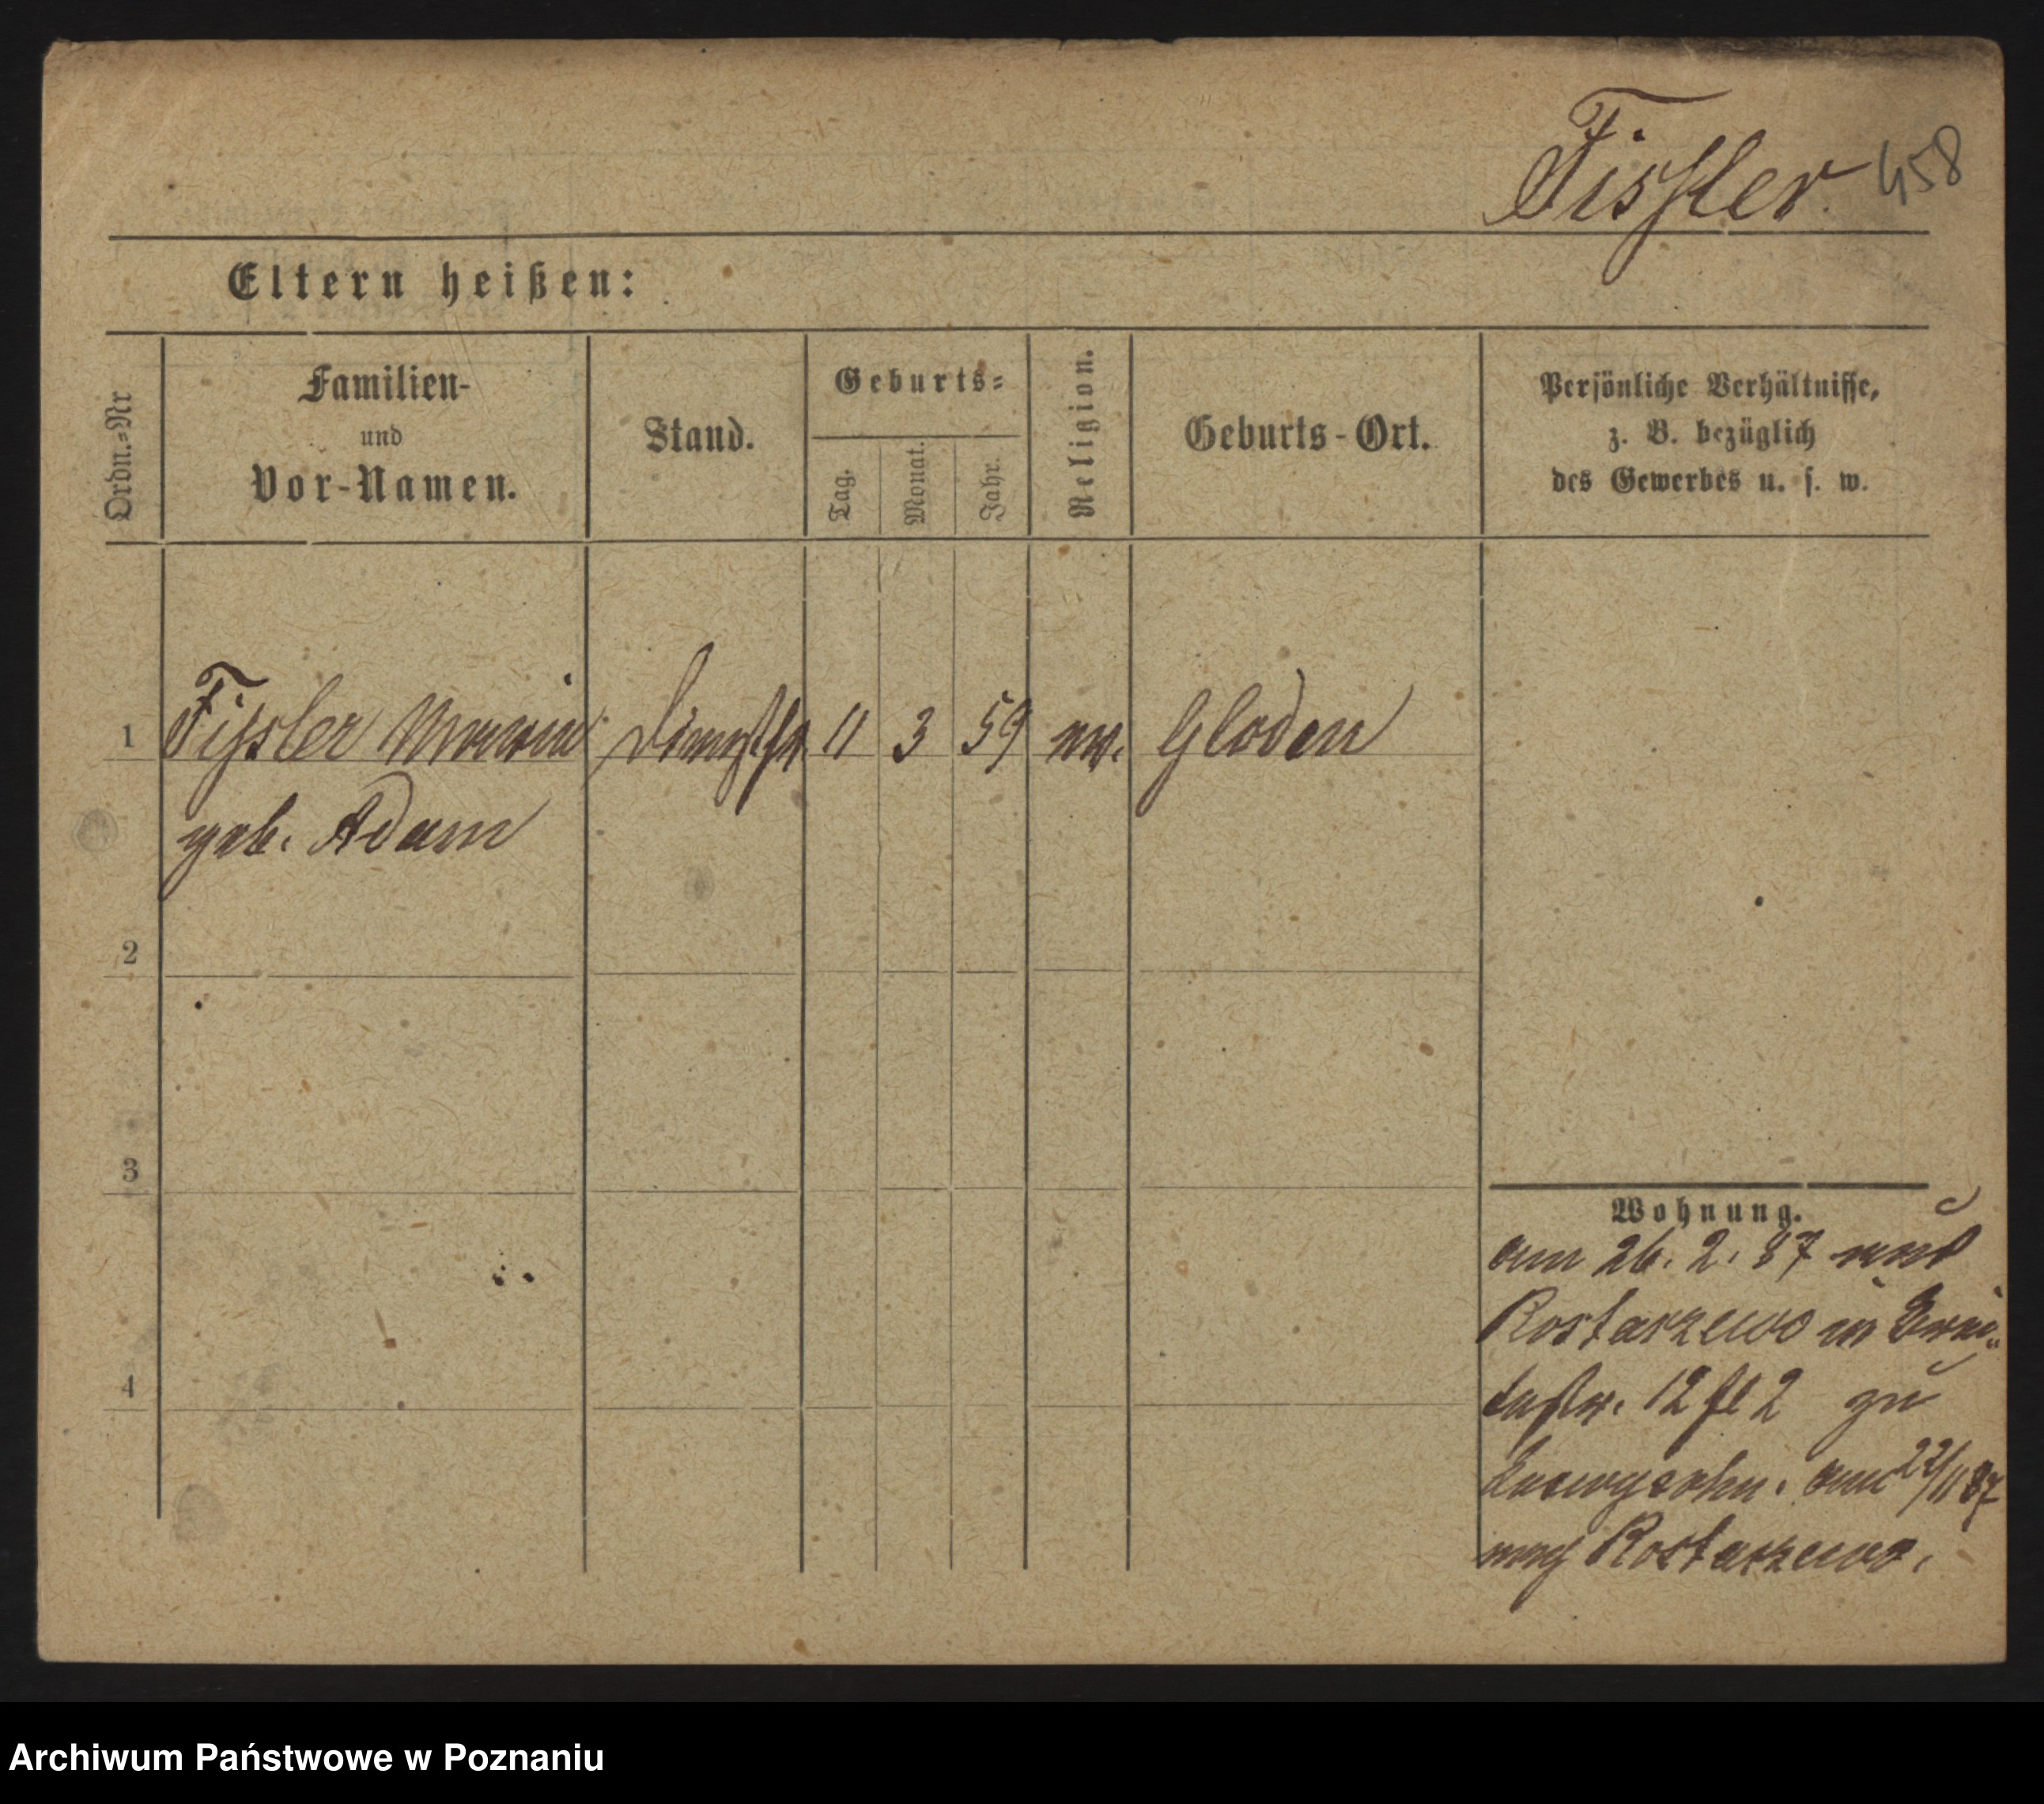 Fissler. 458
Eltern heißen:
Ordn.=Nr
Familien-
und
Vor-Namen.
Stand.
Geburts=
Tag.
Monat.
Jahr.
Religion.
Geburts-Ort.
Persönliche Verhältnisse,
z. B. bezüglich
des Gewerbes u. s. w.
1 Fissler 11 3 59 ev. Gloden
geb. Adam
2
3
4
Wohnung.
am 26. 2. 87 aus
Rostarzewo in
12 zu
am 22/11 87
nach Rostarzewo.
Archiwum Państwowe w Poznaniu